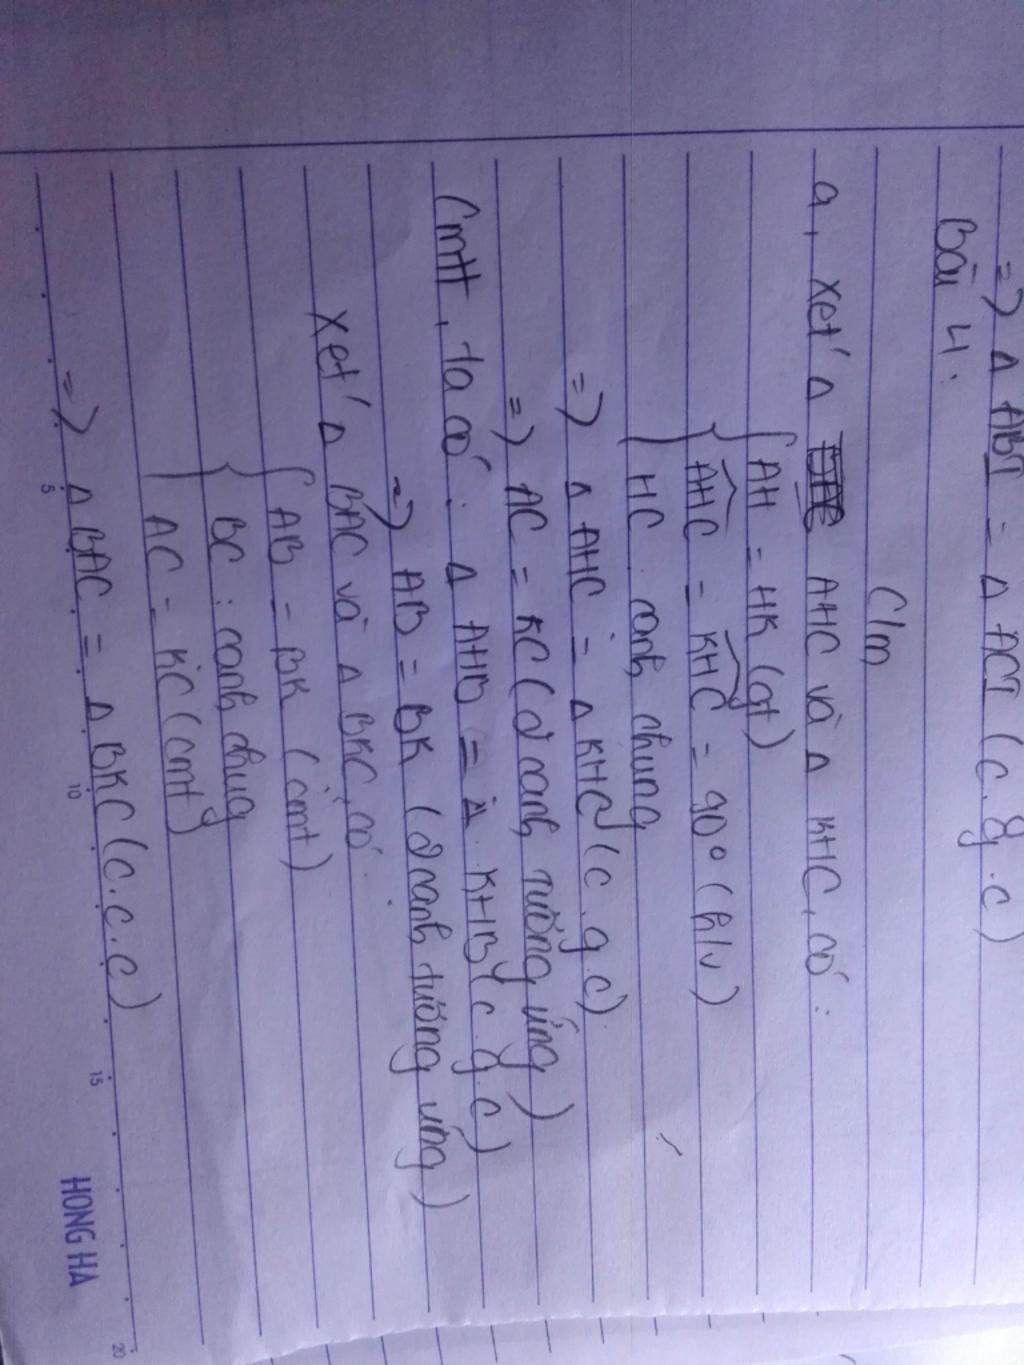 => Δ ABT = Δ ACT (c.g.c)
Bài 4:
C/m
a, Xét Δ AHC và Δ KHC, có:
AH = HK (gt)
AHC = KHC = 90° (h/v)
HC: cạnh chung
=> Δ AHC = Δ KHC (c.g.c)
=> AC = KC (2 cạnh tương ứng)
Cmtt, ta có: Δ AHB = Δ KHB (c.g.c)
=> AB = BK (2 cạnh tương ứng)
Xét Δ BAC và Δ BKC, có
AB = BK (cmt)
BC: cạnh chug
AC = KC (cmt)
=> Δ BAC = Δ BKC (c.c.c)
5 10 15 20
HONG HA